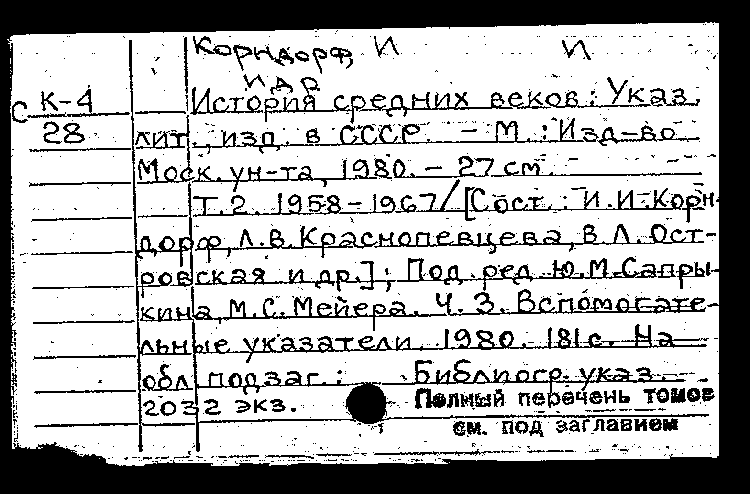 Корндорф, И И
и др
С К-4 История средних веков: Указ.
28 лит., изд. в СССР. – М.: Изд-во
Моск. ун-та, 1980. – 27 см.
Т. 2. 1958–1967/[Сост.: И.И. Корн-
дорф, Л.В. Краснопевцева, В.Л. Ост-
ровская и др.]; Под ред. Ю.М. Сапры-
кина, М.С. Мейера. Ч. 3. Вспомогате-
льные указатели. 1980. 181 с. На
обл. подзаг.: Библиогр. указ.
2032 экз. Полный перечень томов
см. под заглавием